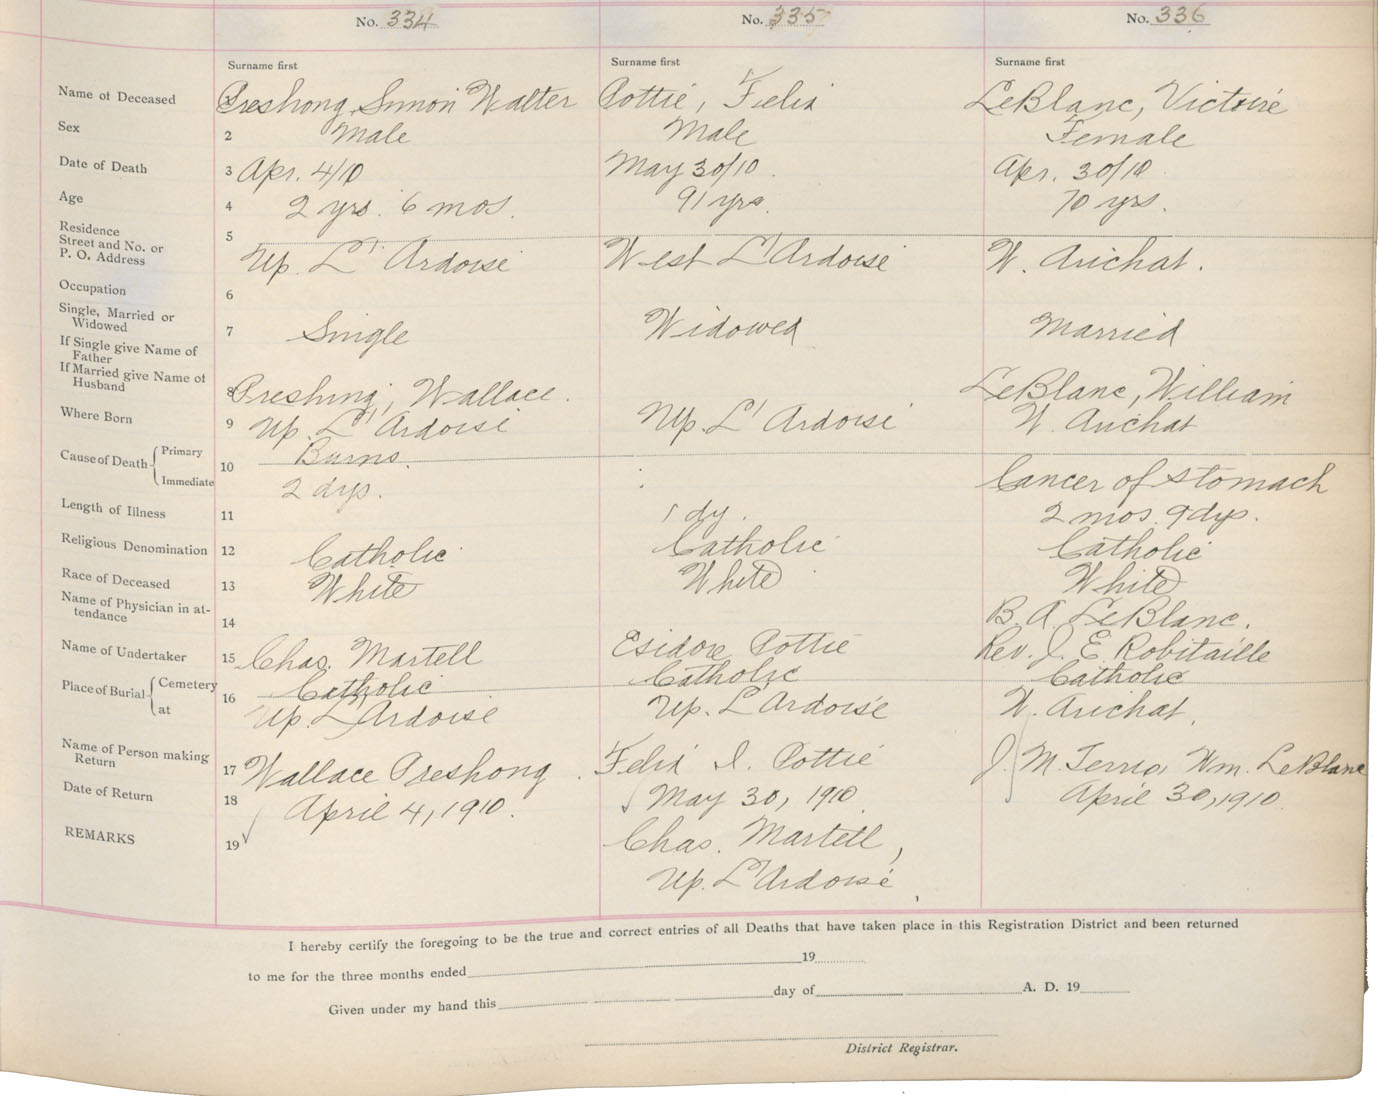 No. 334 No. 335 No. 336
Surname first Surname first Surname first
Name of Deceased Preshong, Simon Walter Pottie, Felix LeBlanc, Victoire
Sex 2 Male Male Female
Date of Death 3 Apr. 4/10 May 30/10 Apr. 30/10
Age 4 2 yrs. 6 mos. 91 yrs. 70 yrs.
Residence 5
Street and No. or
P. O. Address Up. L'Ardoise West L'Ardoise W. Arichat.
Occupation 6
Single, Married or
Widowed 7 Single Widowed Married
If Single give Name of
Father
If Married give Name of
Husband 8 Preshong, Wallace. LeBlanc, William
Where Born 9 Up. L'Ardoise Up. L'Ardoise W. Arichat
Cause of Death Primary 10 Burns.
Immediate 2 dys. Cancer of Stomach
Length of Illness 11 1 dy. 2 mos. 9 dys.
Religious Denomination 12 Catholic Catholic Catholic
Race of Deceased 13 White White White
Name of Physician in at-
tendance 14 B. A. LeBlanc.
Name of Undertaker 15 Chas. Martell Esidore Pottie Rev. J. E. Robitaille
Place of Burial Cemetery 16 Catholic Catholic Catholic
at Up. L'Ardoise Up. L'Ardoise W. Arichat,
Name of Person making
Return 17 Wallace Preshong. Felix I. Pottie J. M. Terrio, Wm. LeBlanc
Date of Return 18 April 4, 1910. May 30, 1910 April 30, 1910
REMARKS 19 Chas. Martell,
Up. L'Ardoise
I hereby certify the foregoing to be the true and correct entries of all Deaths that have taken place in this Registration District and been returned
to me for the three months ended 19
Given under my hand this day of A. D. 19
District Registrar.